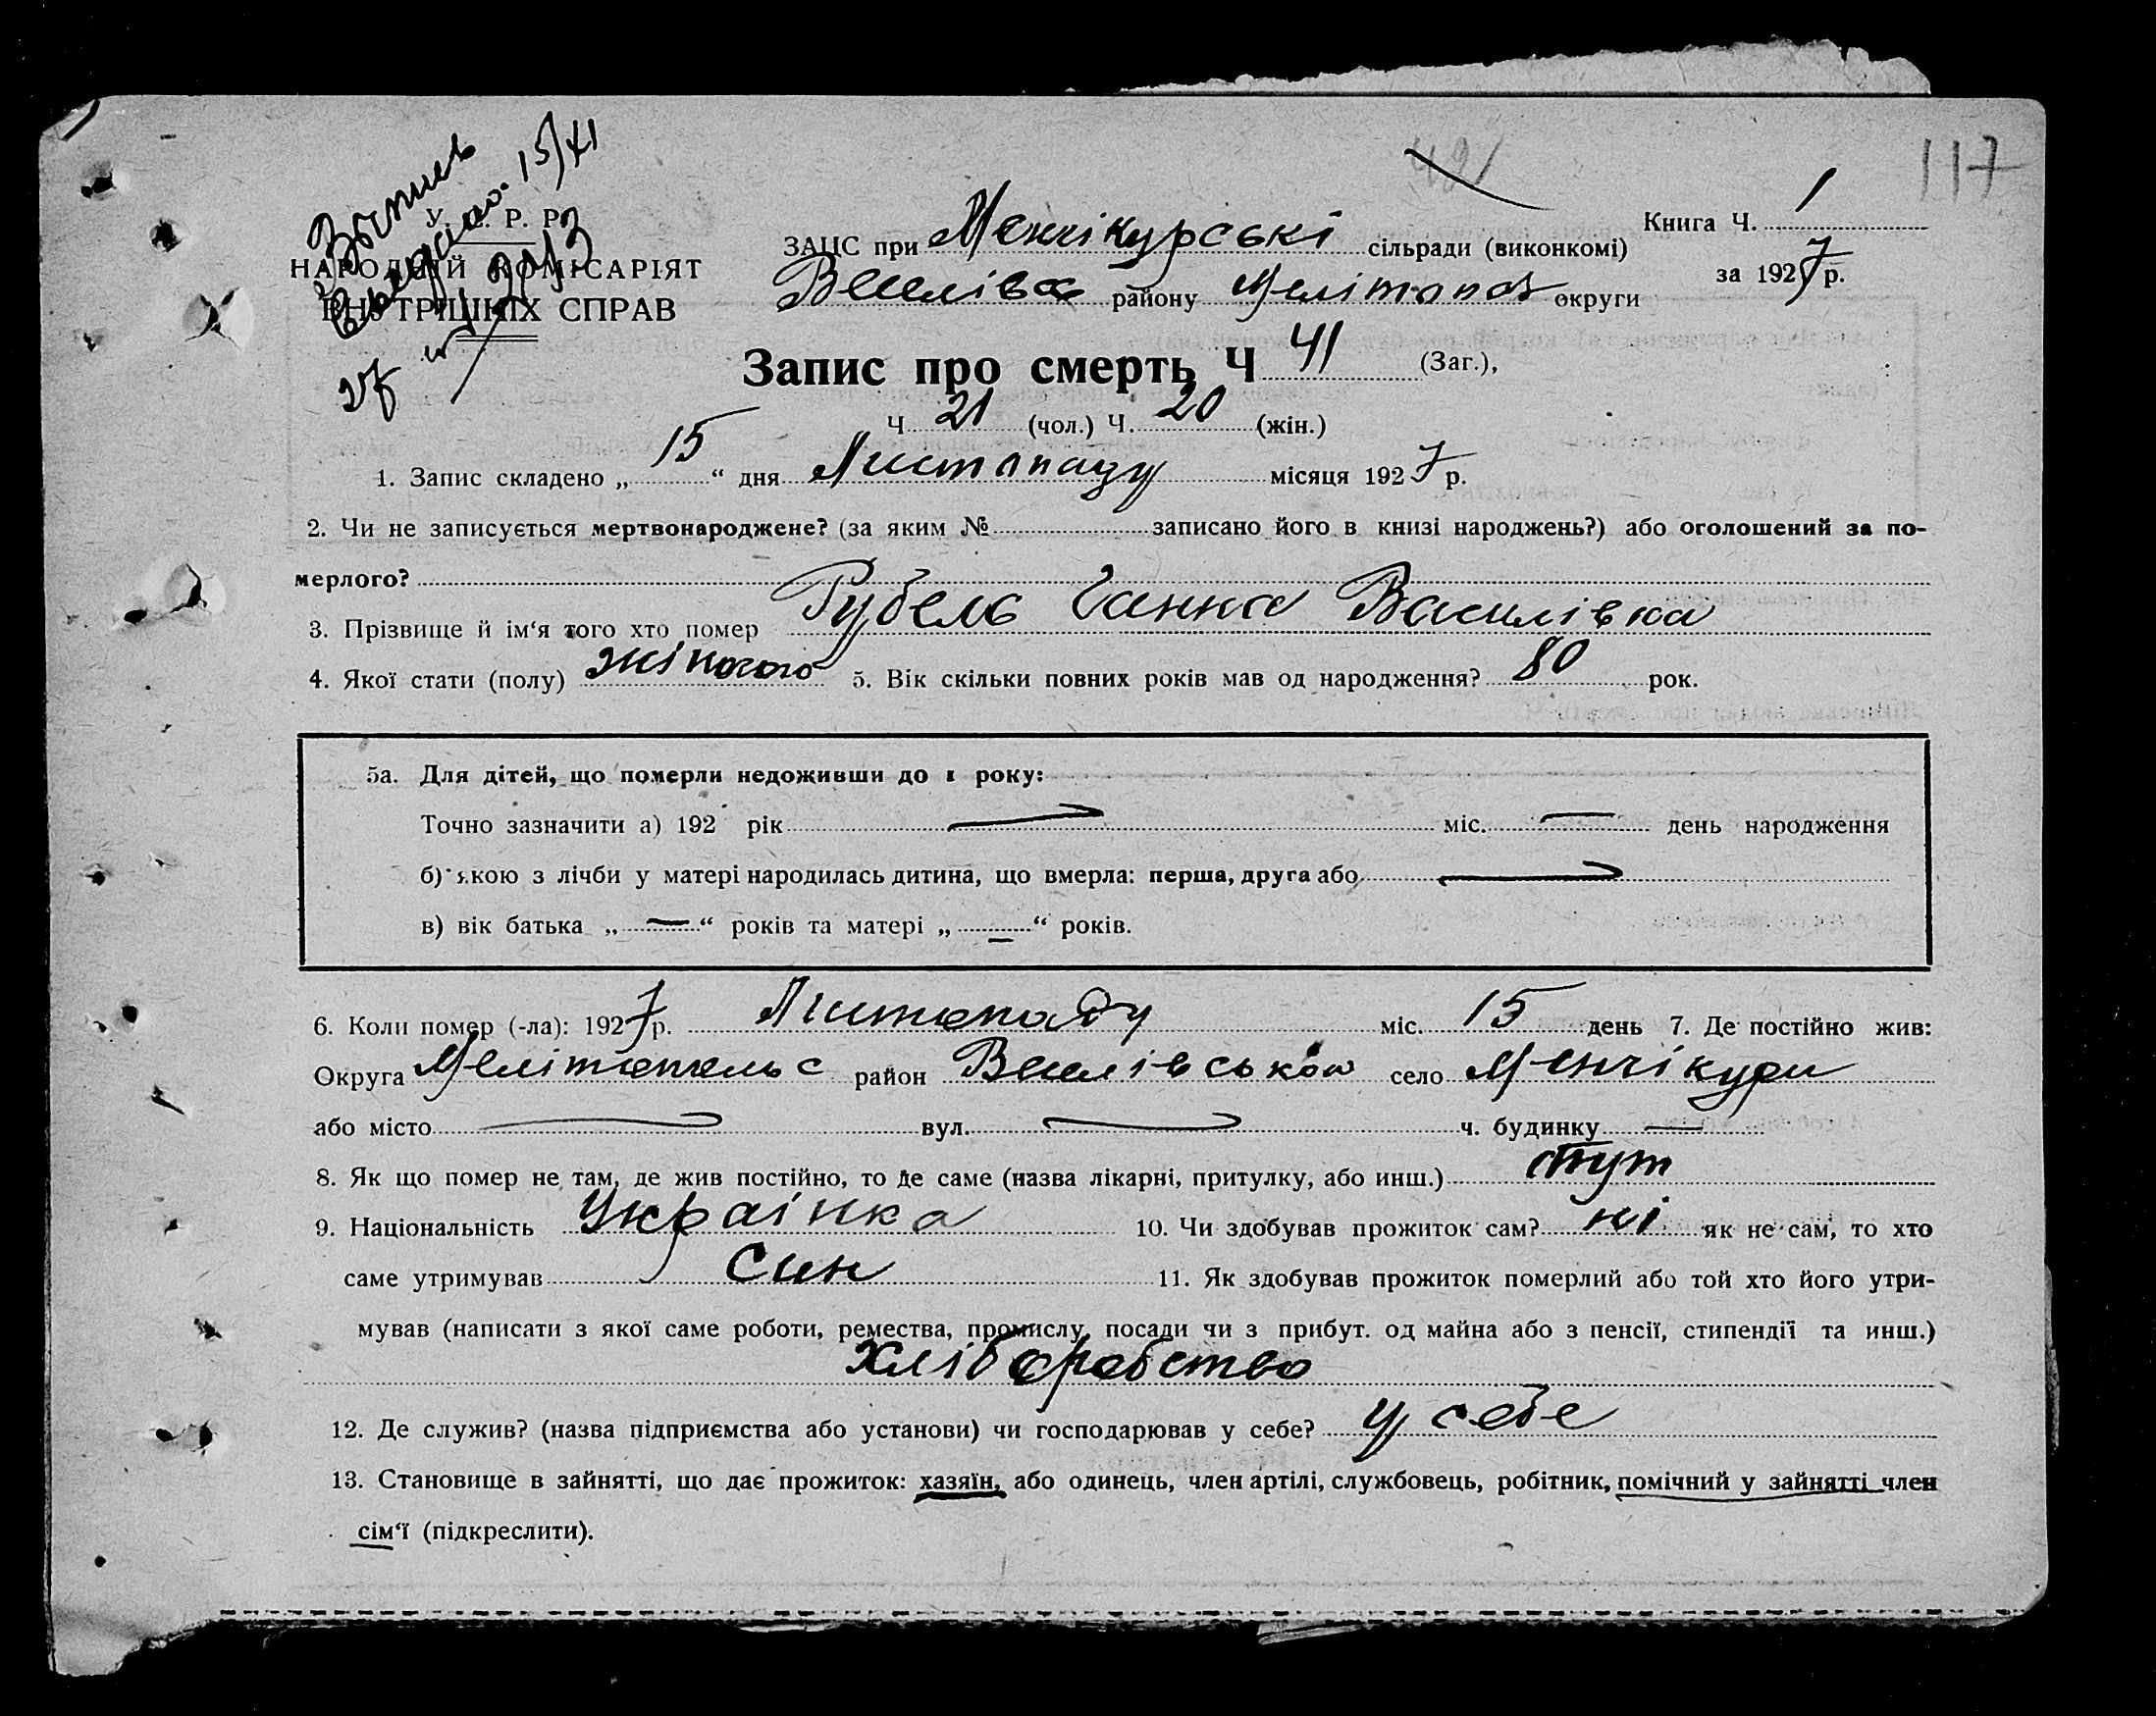 117
У. С. Р. Р.
НАРОДНІЙ КОМІСАРІЯТ
ВНУТРІШНІХ СПРАВ
15/XI
Книга Ч. 1
за 1927 р.
ЗАЦС при Менчікурські сільради (виконкомі)
Веселівс району Мелітопол округи
Запис про смерть Ч 41 (Заг.),
Ч 21 (чол.) Ч. 20 (жін.)
1. Запис складено „ 15 “ дня Листопаду місяця 1927 р.
2. Чи не записується мертвонароджене? (за яким № записано його в книзі народжень?) або оголошений за по-
мерлого?
3. Прізвище й ім‘я того хто помер Рубель Ганна Василівка
4. Якої стати (полу) жіночого 5. Вік скільки повних років мав од народження? 80 рок.
5а. Для дітей, що померли недоживши до 1 року:
Точно зазначити а) 192 рік — міс. — день народження
б) якою з лічби у матері народилась дитина, що вмерла: перша, друга або —
в) вік батька „ — “ років та матері „ — “ років.
6. Коли помер (-ла): 1927 р. Листопаду міс. 15 день 7. Де постійно жив:
Округа Мелітопольс район Веселівськом село Менчікури
або місто — вул. — ч. будинку —
8. Як що помер не там, де жив постійно, то де саме (назва лікарні, притулку, або инш.) тут
9. Національність Украінка 10. Чи здобував прожиток сам? ні як не сам, то хто
саме утримував син 11. Як здобував прожиток померлий або той хто його утри-
мував (написати з якої саме роботи, ремества, промислу, посади чи з прибут. од майна або з пенсії, стипендії та инш.)
Хліборобство
12. Де служив? (назва підприємства або установи) чи господарював у себе? у себе
13. Становище в зайнятті, що дає прожиток: хазяїн, або одинець, член артілі, службовець, робітник, помічний у зайнятті член
сім‘ї (підкреслити).